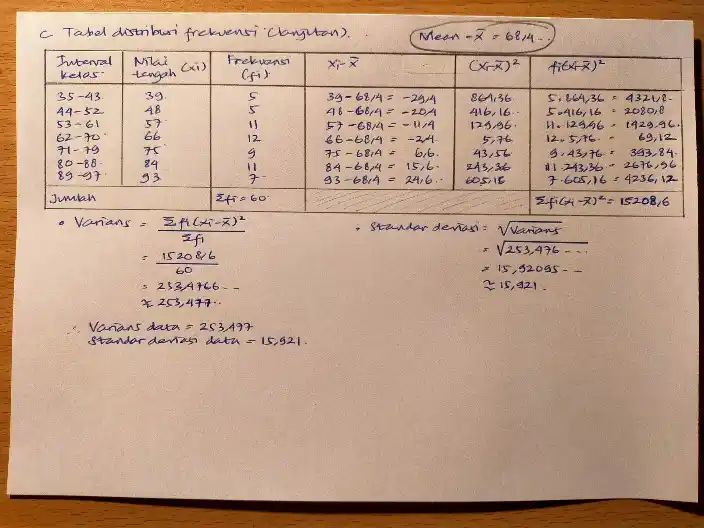 C Tabel distribusi frekuensi (lanjutan).
Mean = x̄ = 68,4...
Interval kelas Nilai tengah (xi) Frekuensi (fi) xi-x̄ (xi-x̄)² fi(xi-x̄)²
35-43 39 5 39-68,4 = -29,4 864,36 5.864,36 = 4321,8
44-52 48 5 48-68,4 = -20,4 416,16 5.416,16 = 2080,8
53-61 57 11 57-68,4 = -11,4 129,96 11.129,96 = 1429,96
62-70 66 12 66-68,4 = -2,4 5,76 12.5,76 = 69,12
71-79 75 9 75-68,4 = 6,6 43,56 9.43,76 = 393,84
80-88 84 11 84-68,4 = 15,6 243,36 11.243,36 = 2676,96
89-97 93 7 93-68,4 = 24,6 605,16 7.605,16 = 4236,12
Jumlah Σfi = 60 Σfi(xi-x̄)² = 15208,6
• Varians = Σfi(xi-x̄)² / Σfi
= 15208,6 / 60
= 253,4766...
≈ 253,477..
∴ Varians data = 253,477
Standar deviasi data = 15,921.
• Standar deviasi = √Varians
= √253,476...
= 15,92095--
≈ 15,921.